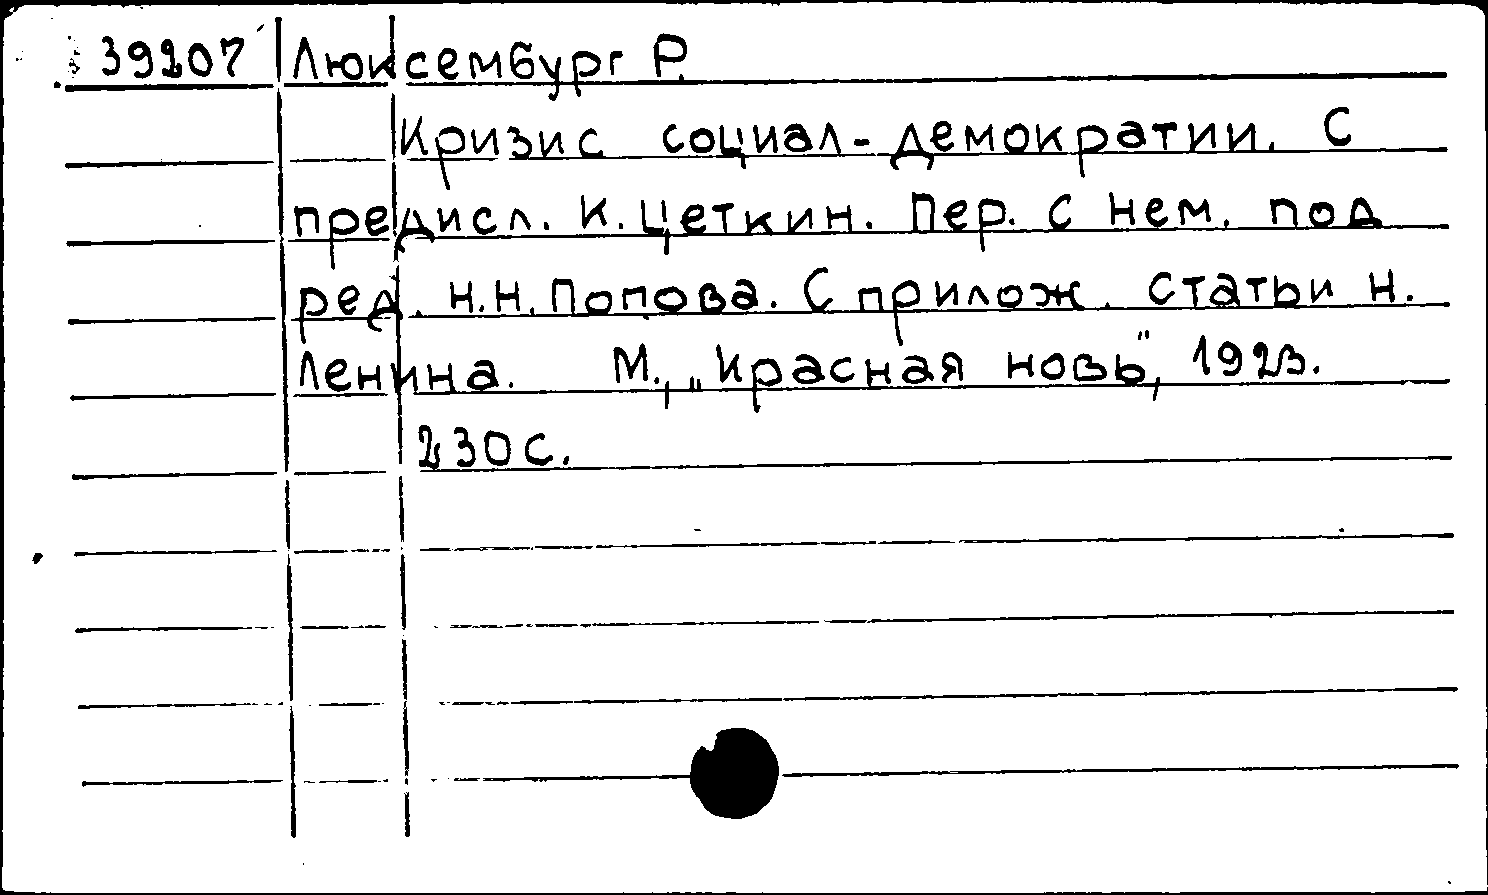 39207 Люксембург Р.
Кризис социал-демократии. С
предисл. К. Цеткин. Пер. с нем. под
ред. Н.Н. Попова. С прилож. статьи Н.
Ленина. М., „Красная новь", 1923.
230 с.